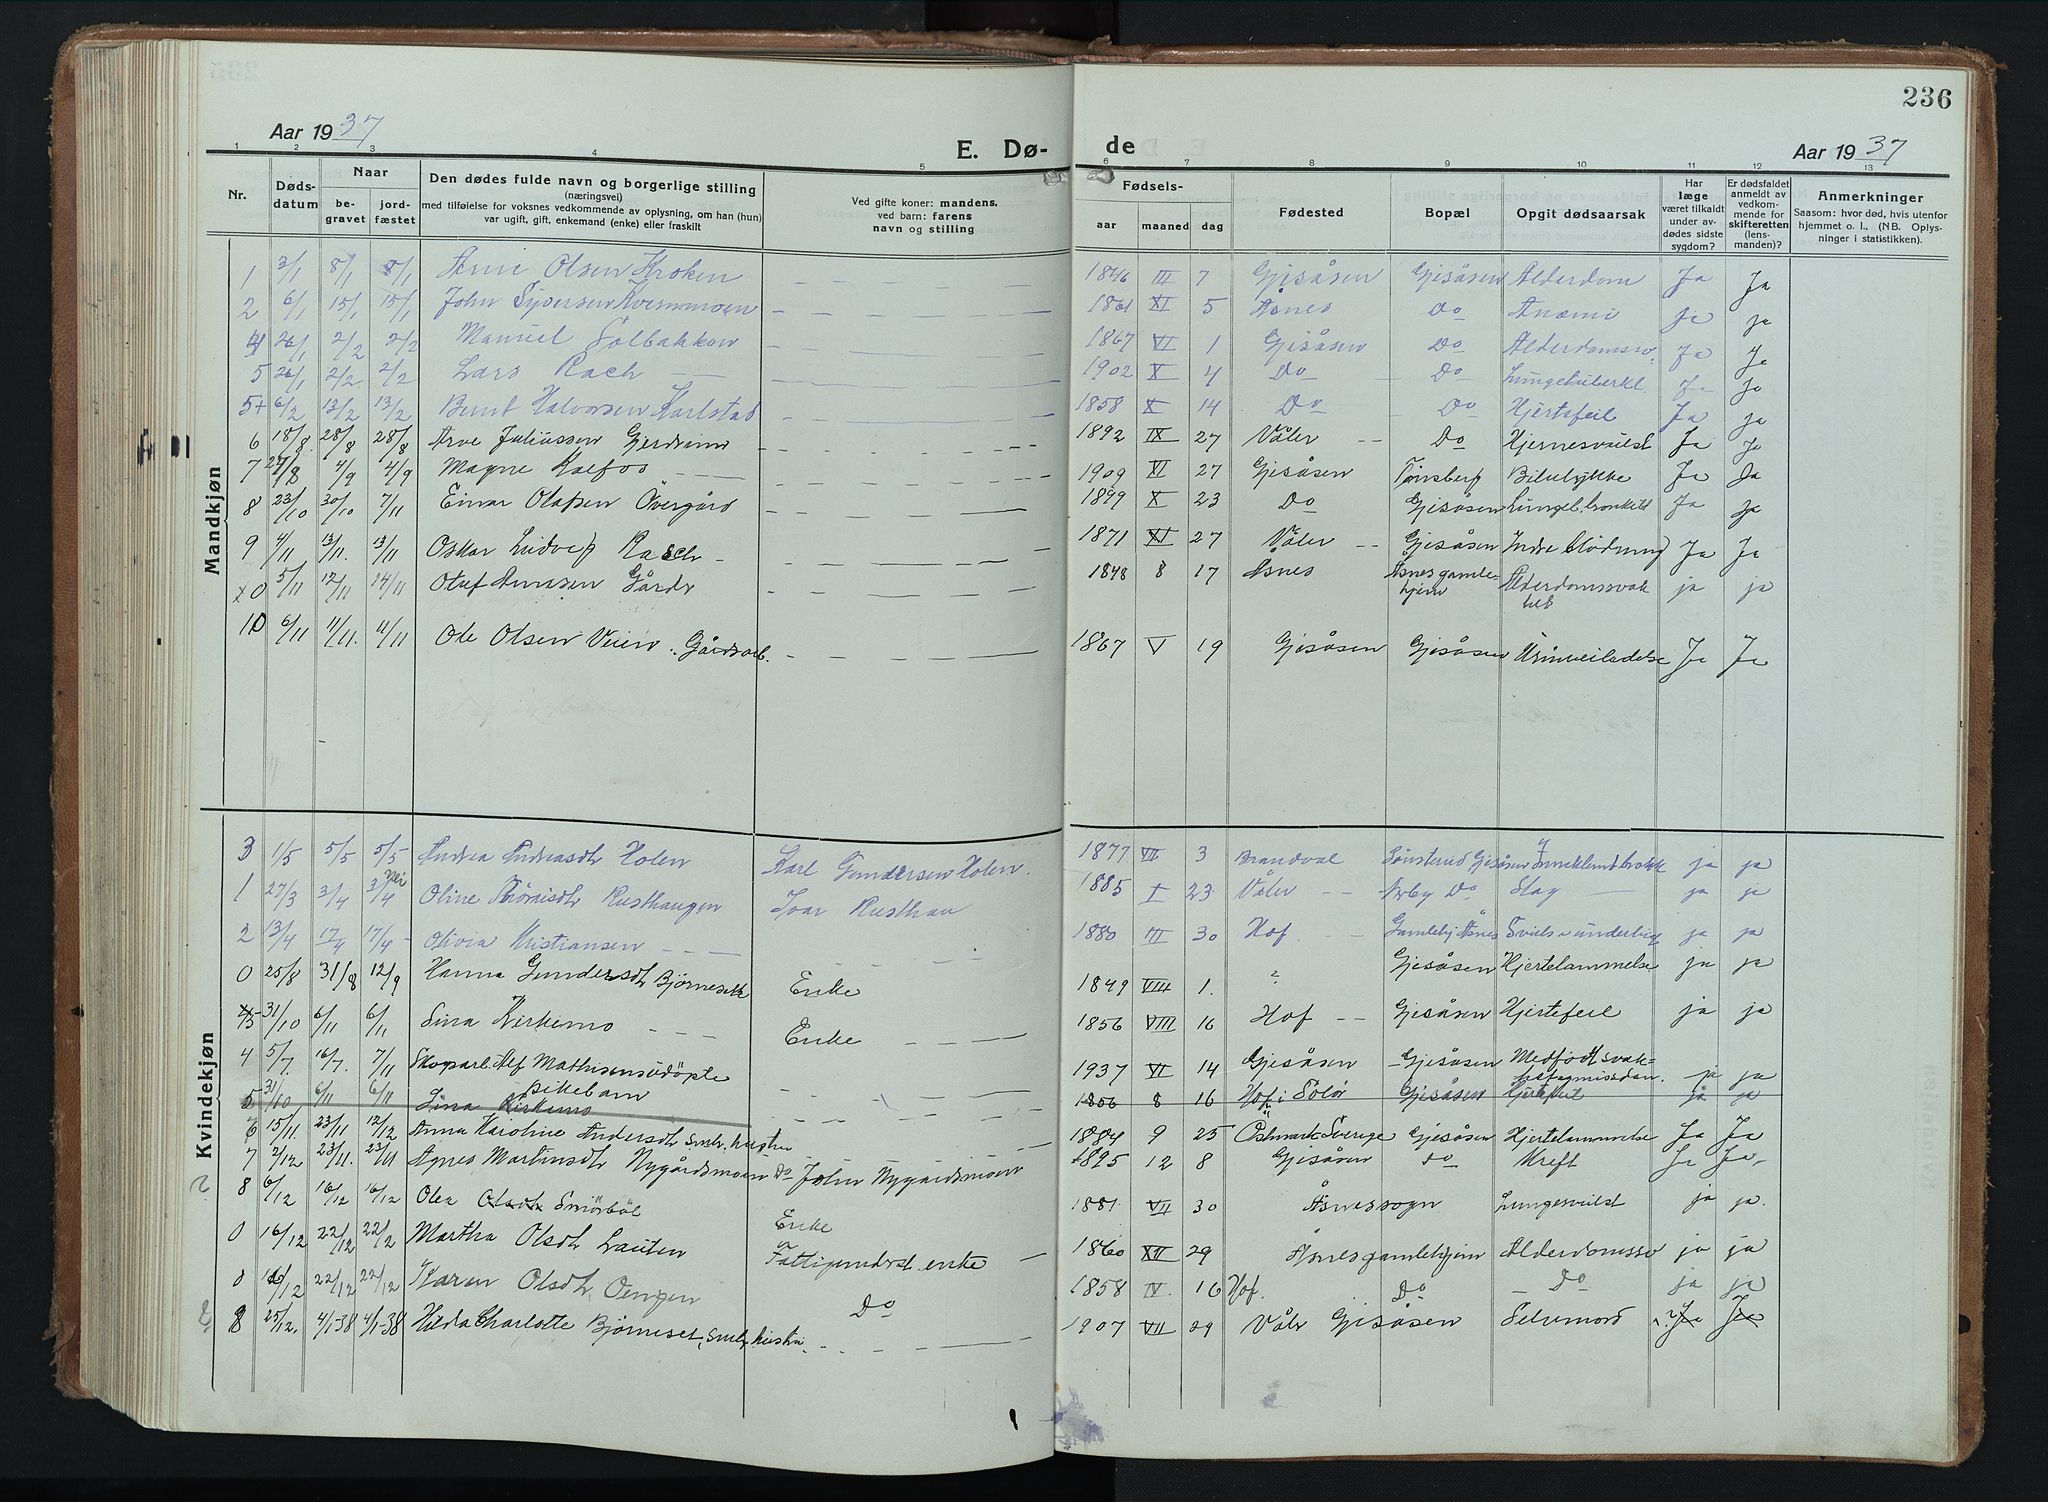 236
Aar 1937
E. Dø-
de
Aar 1937
1 2 3 4 5 6 7 8 9 10 11 12 13
Nr.
Døds-
datum
Naar
be-
gravet
jord-
fæstet
Den dødes fulde navn og borgerlige stilling
(næringsvei)
med tilføielse for voksnes vedkommende av oplysning, om han (hun)
var ugift, gift, enkemand (enke) eller fraskilt
Ved gifte koner: mandens,
ved barn: farens
navn og stilling
Fødsels-
aar maaned dag
Fødested
Bopæl
Opgit dødsaarsak
Har
læge
været tilkaldt
under av-
dødes sidste
sygdom?
Er dødsfaldet
anmeldt av
vedkom-
mende for
skifteretten
(lens-
manden)?
Anmerkninger
Saasom: hvor død, hvis utenfor
hjemmet o. l., (NB. Oplys-
ninger i statistikken).
Mandkjøn
1 3/1 8/1 8/1 Arne Olsen Kroken 1846 III 7 Gjesåsen Gjesåsen Alderdom Ja Ja
2 6/1 15/1 15/1 John Syversen 1861 XI 5 Åsnes Do Anæmi ja ja
4 26/1 2/2 2/2 Manuel Solbakken 1867 VI 1 Gjesåsen Do Alderdomssv. Ja Ja
5 26/1 2/2 2/2 Lars Rach 1902 X 4 Do Do Lungetuberkl. Ja Ja
5+ 6/2 13/2 13/2 Bernt Halvorsen Karlstad 1858 X 14 Do Do Hjertefeil Ja Ja
6 18/8 28/8 28/8 Arve Juliussen Gjerdrum 1892 IX 27 Våler Do Hjernesvulst Ja Ja
7 27/8 4/9 4/9 Magne Kalfos 1909 VI 27 Gjesåsen Tønsberg Bilulykke Ja Ja
8 23/10 30/10 7/11 Einar Olafsen Övergård 1899 X 23 Do Gjesåsen Lunge b. bronkitt Ja Ja
9 4/11 13/11. 13/11 Oskar Ludvig Rasch 1871 XI 27 Våler Gjesåsen Indre blödning Ja Ja
x0 5/11 12/11 14/11 Oluf Arnesen Gårdr 1848 8 17 Åsnes Åsnes gamle-
hjem Alderdomssvak
het ja ja
10 6/11 11/11. 11/11 Ole Olsen Veien. Gårdsarb. 1867 V 19 Gjesåsen Gjesåsen Urinveislidelse Ja Ja
Kvindekjøn
3 1/5 5/5 5/5 Andrea Andreasdtr Holen Karl Gundersen Holen. 1877 VII 3 Brandval Sönsterud Gjesåsen Inneklemt brokk ja ja
1 27/3 3/4 3/4 Oline Rusthaugen Ivar Rusthau 1885 I 23 Våler Nerby Do Slag ja ja
2 13/4 17/4 17/4 Olivia Kristiansen 1880 III 30 Hof Gamlehj Åsnes ja ja
0 25/8 31/8 12/9 Hanna Gundersdtr Björneseth Enke 1849 VIII 1. ? Gjesåsen Hjertelammelse ja ja
31/10 6/11 6/11 Sina Kirkemo Enke 1856 VIII 16 Hof Gjesåsen Hjertefeil ja ja
4 5/7 16/7. 7/11 Skogsarb. Alf Mathisens udöpte
pikebarn 1937 VI 14 Gjesåsen Gjesåsen Medfödt svak-
ja ja
5 31/10 6/11 6/11 Sina Kirkemo 1856 8 16 Hof i Solör Gjesåsen Hjertefeil ja ja
6 15/11. 23/11 12/12 Anna Karoline Andersdtr Småbr. hustru 1884 9 25 Östmark Sverige Gjesåsen Hjertelammelse Ja Ja
7 2/12 23/11. 23/11 Agnes Martinsdtr Nygårdsmoen Do John Nygårdsmoen 1895 12 8 Gjesåsen do Kreft Ja Ja
8 6/12 16/12 16/12 Olea Olsdtr Smörböl Enke 1881 VII 30 Åsnes sogn Lungesvulst ja ja.
0 16/12 22/12 22/12 Martha Olsdtr Lauten Fattigunderst. enke 1860 XII 29 Åsnes gamlehjem Alderdomssv ja ja
0 16/12 22/12 22/12 Karen Olsdtr Oengen Do 1858 IV. 16 Hof. Do Do ja ja
8 25/12. 4/1-38 4/1-38 Hilda Charlotte Björneset, Småbr. hustru 1907 VII 29 Våler Gjesåsen Selvmord ? Ja Ja